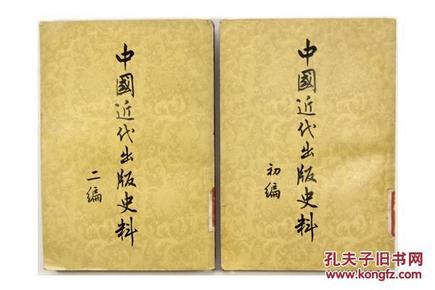 中國近代出版史料
二编
中國近代出版史料
初编
孔夫子旧书网
www.kongfz.com